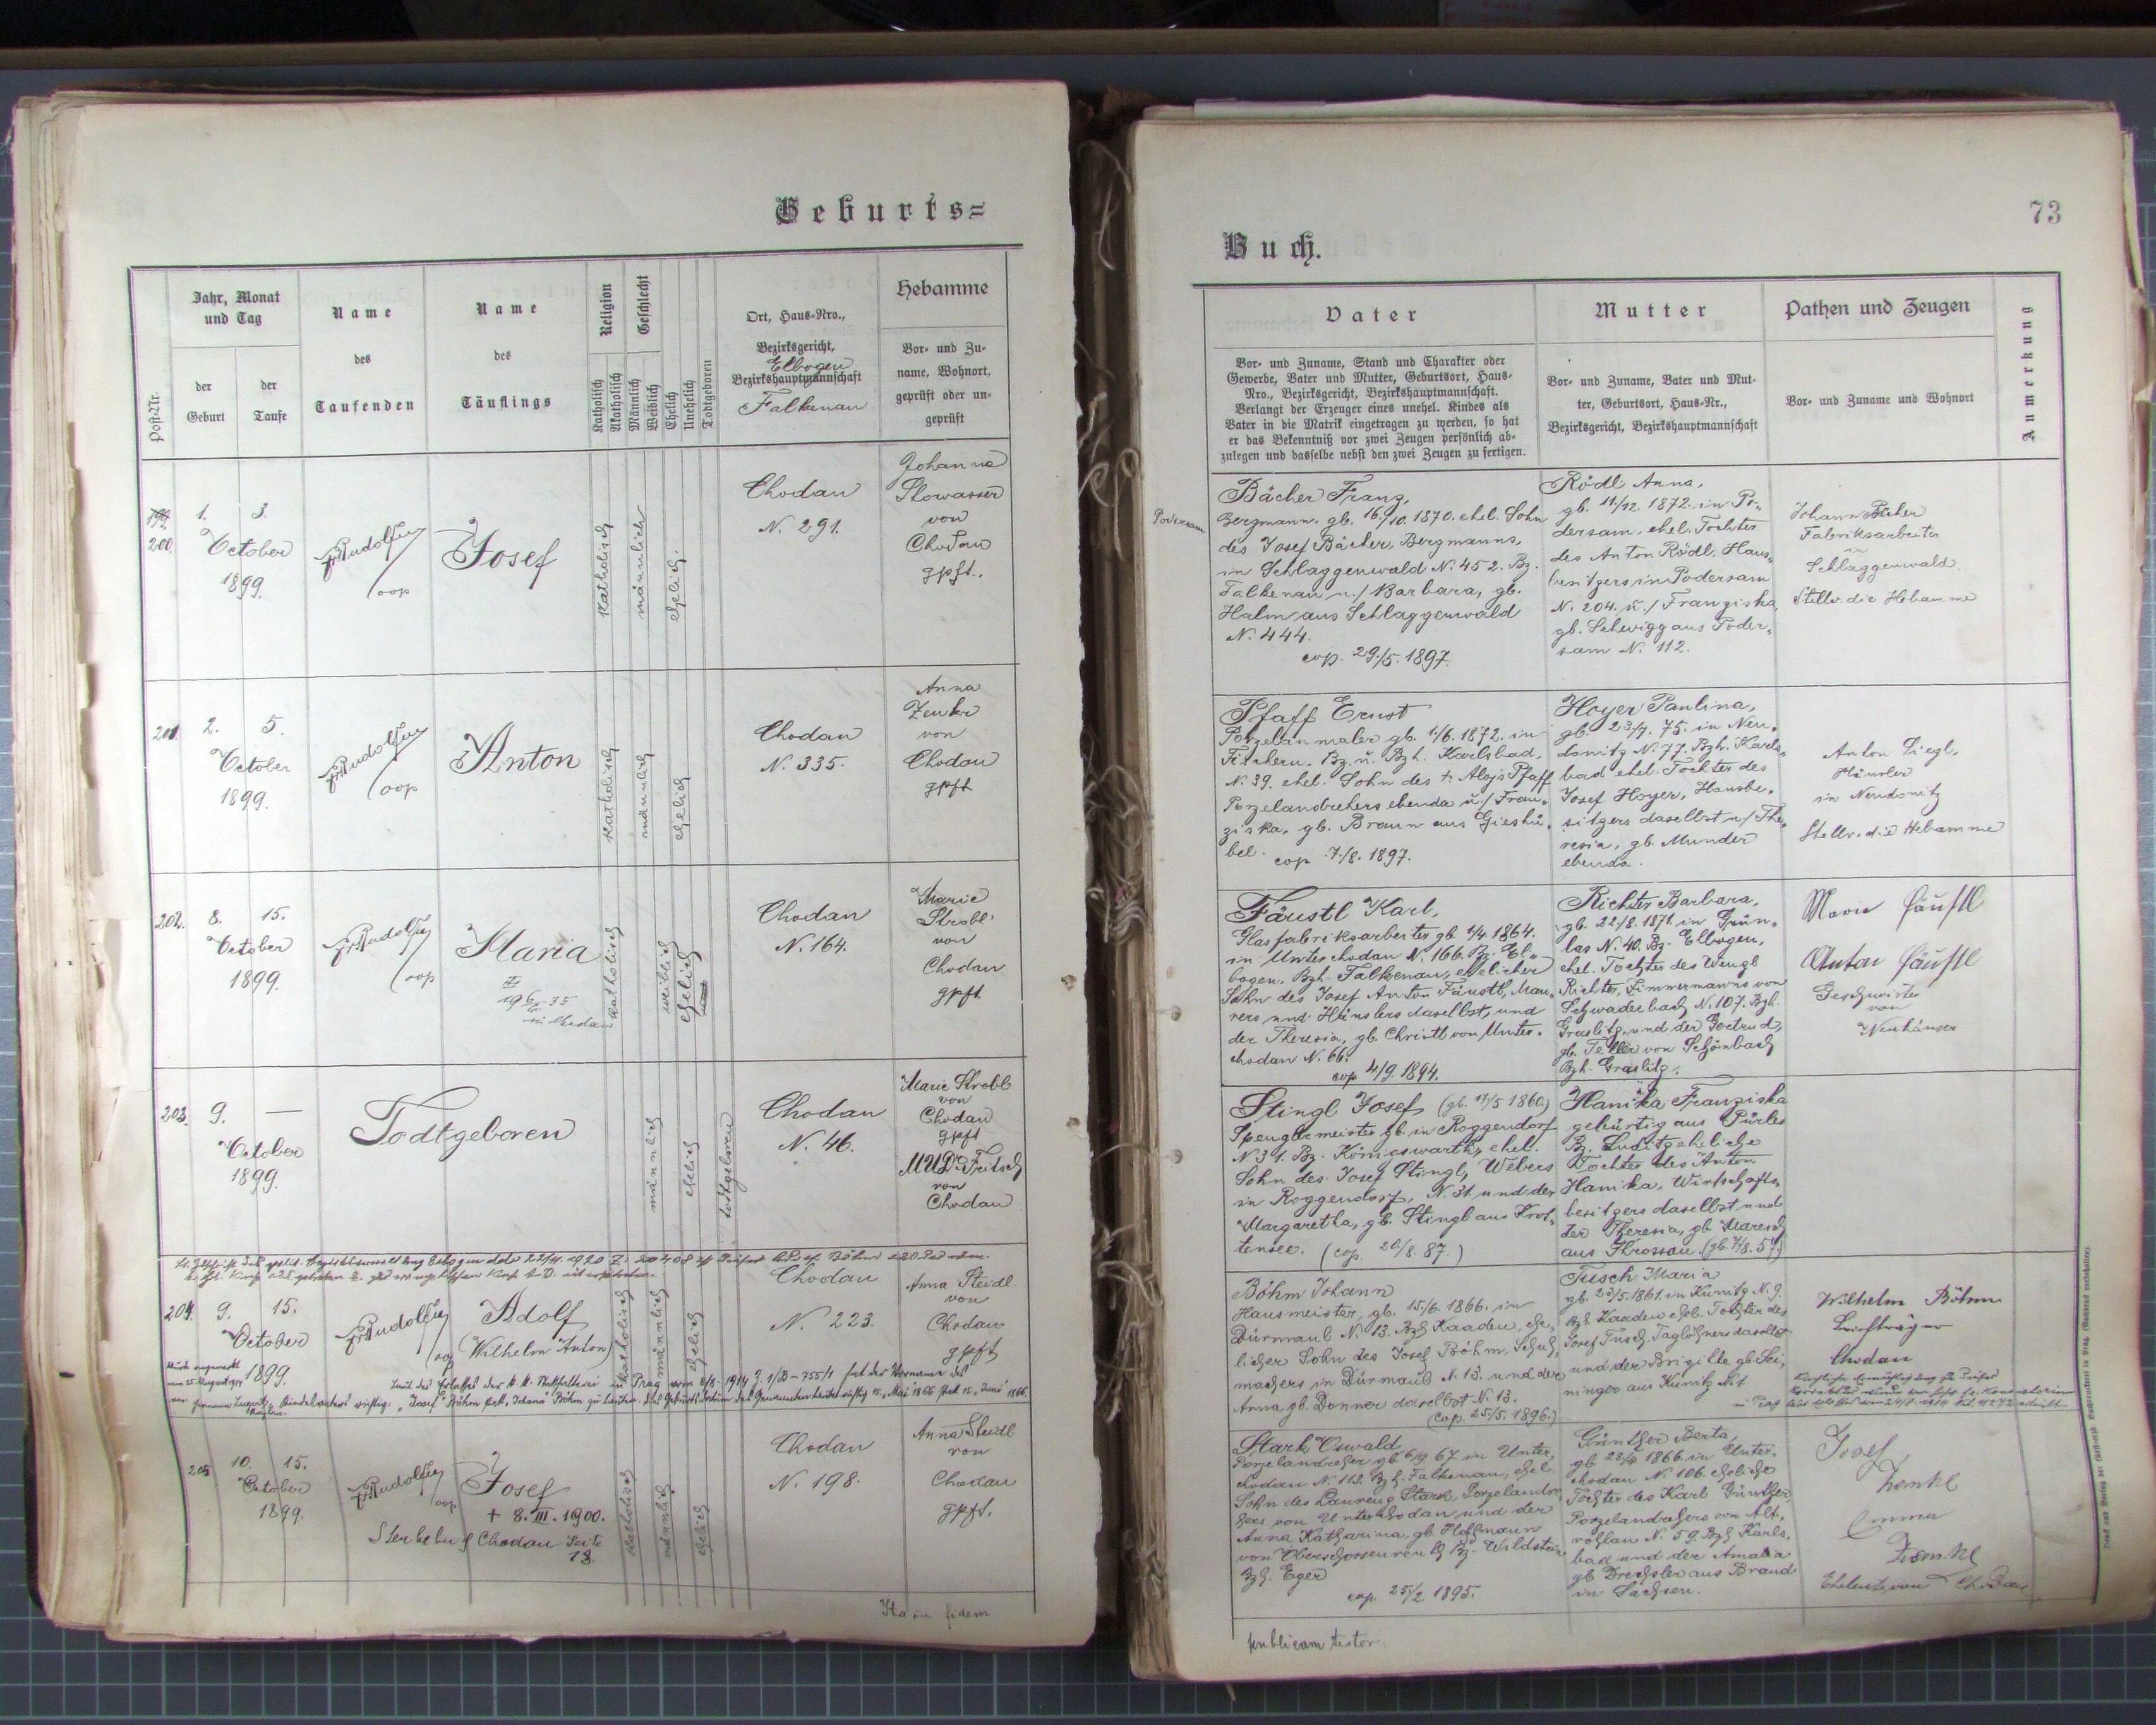 Geburts=
Jahr, Monat
und Tag
der
Geburt
der
Taufe
Post-Nr.
Name
des
Taufenden
Name
des
Täuflings
Religion
Katholisch
Akatholisch
Geschlecht
Männlich
Weiblich
Ehelich
Unehelich
Todtgeboren
Ort, Haus-Nro.,
Bezirksgericht,
Elbogen
Bezirkshauptmannschaft
Falkenau
Hebamme
Vor- und Zu-
name, Wohnort,
geprüft oder un-
geprüft
199.
200.
1. 3.
October
1899.
Josef
katholisch
männlich
ehelich.
Chodau
N. 291.
Johanna
Slowasser
von
Chodau
gpft.
201.
2. 5.
October
1899.
Anton
katholisch
männlich
ehelich
Chodau
N. 335.
Anna
Zenker
von
Chodau
gpft
202.
8. 15.
October
1899.
Maria
katholisch
weiblich
ehelich
Chodau
N. 164.
Marie
Strobl
von
Chodau
gpft.
203.
9. —
October
1899.
Todtgeboren
männlich
ehelich
todtgeboren
Chodau
N. 46.
Marie Strobl
von
Chodau
gpft
MUDr. Fritsch
von
Chodau
204.
9. 15.
October
1899.
Adolf
(Wilhelm Anton)
katholisch
männlich
ehelich
Chodau
N. 223.
Anna Steidl
von
Chodau
gpft
205
10. 15.
October
1899.
Josef
+ 8. III. 1900.
Sterbebuch Chodau Seite
18.
katholisch
männlich
ehelich
Chodau
N. 198.
Anna Steidl
von
Chodau
gpft.
Ita in fidem
73
Buch.
Vater
Vor- und Zuname, Stand und Charakter oder
Gewerbe, Vater und Mutter, Geburtsort, Haus-
Nro., Bezirksgericht, Bezirkshauptmannschaft.
Verlangt der Erzeuger eines unehel. Kindes als
Vater in die Matrik eingetragen zu werden, so hat
er das Bekenntniß vor zwei Zeugen persönlich ab-
zulegen und dasselbe nebst den zwei Zeugen zu fertigen.
Mutter
Vor- und Zuname, Vater und Mut-
ter, Geburtsort, Haus-Nr.,
Bezirksgericht, Bezirkshauptmannschaft
Pathen und Zeugen
Vor- und Zuname und Wohnort
Anmerkung
Podersam
Bächer Franz,
Bergmann, gb. 16./10. 1870. ehel. Sohn
des Josef Bächer, Bergmanns,
in Schlaggenwald N. 452. Bz.
Falkenau u./ Barbara, gb.
Halm aus Schlaggenwald
N. 444.
cop. 29./5. 1897.
Rödl Anna,
gb. 11/12. 1872. in Po-
dersam, ehel. Tochter
des Anton Rödl, Haus-
besitzers in Podersam
N. 204. u./ Franziska,
gb. Schwigg aus Poder-
sam N. 112.
Johann Bächer
Fabriksarbeiter
in
Schlaggenwald.
Stellv. die Hebamme
Pfaff Ernst
Porzelanmaler gb. 1/6. 1872. in
Fischern, Bz. u. Bzh. Karlsbad,
N. 39. ehel. Sohn des + Alois Pfaff
Porzelandrehers ebenda u./ Fran-
ziska, gb. Braun aus Gieshü-
bel. cop 7./8. 1897.
Hoyer Paulina,
gb. 23/7. 75. in Neu-
donitz N. 77. Bzh. Karls-
bad ehel. Tochter des
Josef Hoyer, Hausbe-
sitzers daselbst u./ The-
resia, gb. Munder
ebenda.
Anton Siegl,
Häusler
in Neudonitz
Stellv. die Hebamme
Fäustl Karl,
Glasfabriksarbeiter gb. 1/4. 1864.
in Unterchodau N. 166. Bz. El-
bogen, Bzh. Falkenau, ehelicher
Sohn des Josef Anton Fäustl, Mau-
rers und Häuslers daselbst, und
der Theresia, gb. Christl von Unter-
chodau N. 66.
cop 4/9. 1894.
Richter Barbara,
gb. 22./8. 1871. in Grün-
las N. 40. Bz. Elbogen,
ehel. Tochter des Wenzl
Richter, Zimmermanns von
Schwaderbach N. 107. Bzh.
Graslitz, und der Gertrud,
gb. Teller von Schönbach
Bzh. Graslitz.
Marie Fäustl
Anton Fäustl
Geschwister
von
Neuhäuser
Stingl Josef (gb. 17/5 1860.)
Spenglermeister gb. in Roggendorf
N. 31. Bz. Königswarth, ehel.
Sohn des Josef Stingl, Webers
in Roggendorf, N. 31 und der
Margaretha, gb. Stingl aus Krot-
tensee. (cop. 20/8. 87.)
Hanika Franziska
gebürtig aus Pürles
Bz. Luditz eheliche
Tochter des Anton
Hanika, Wirtschafts-
besitzers daselbst und
der Theresia, gb. Maresch
aus Krossau. (gb. 7/8. 57.)
Böhm Johann
Hausmeister, gb. 15./6. 1866. in
Dürmaul N. 13. Bzh. Kaaden, ehe-
licher Sohn des Josef Böhm, Schuh-
machers in Dürmaul N. 13. und der
Anna gb. Donner daselbst N. 13.
(cop. 25./5. 1896.)
Tusch Maria
gb. 25/5. 1861. in Kunitz N. 9.
Bzh. Kaaden ehel. Tochter des
Josef Tusch, Taglöhners daselbst
und der Brigitte gb. Sei-
ninger aus Kunitz N. 1.
Wilhelm Böhm
Briefträger
Chodau
Stark Oswald,
Porzelandreher gb. 6/9 67. in Unter-
chodau N. 113. Bzh. Falkenau, ehel.
Sohn des Laurenz Stark, Porzelandre-
hers von Unterchodau, und der
Anna Katharina, gb. Hoffmann
von Oberschossenreuth Bz. Wildstein
Bzh. Eger
cop. 25/2. 1895.
Günther Berta,
gb. 28/4. 1866. in Unter-
chodau N. 106. eheliche
Tochter des Karl Günther,
Porzelandrehers von Alt-
rohlau N. 59. Bzh. Karls-
bad und der Amalia
gb. Drechsler aus Brand
in Sachsen.
Josef
Zenkl
Emma
Zenkl
Eheleute von Chodau
publicam testor.